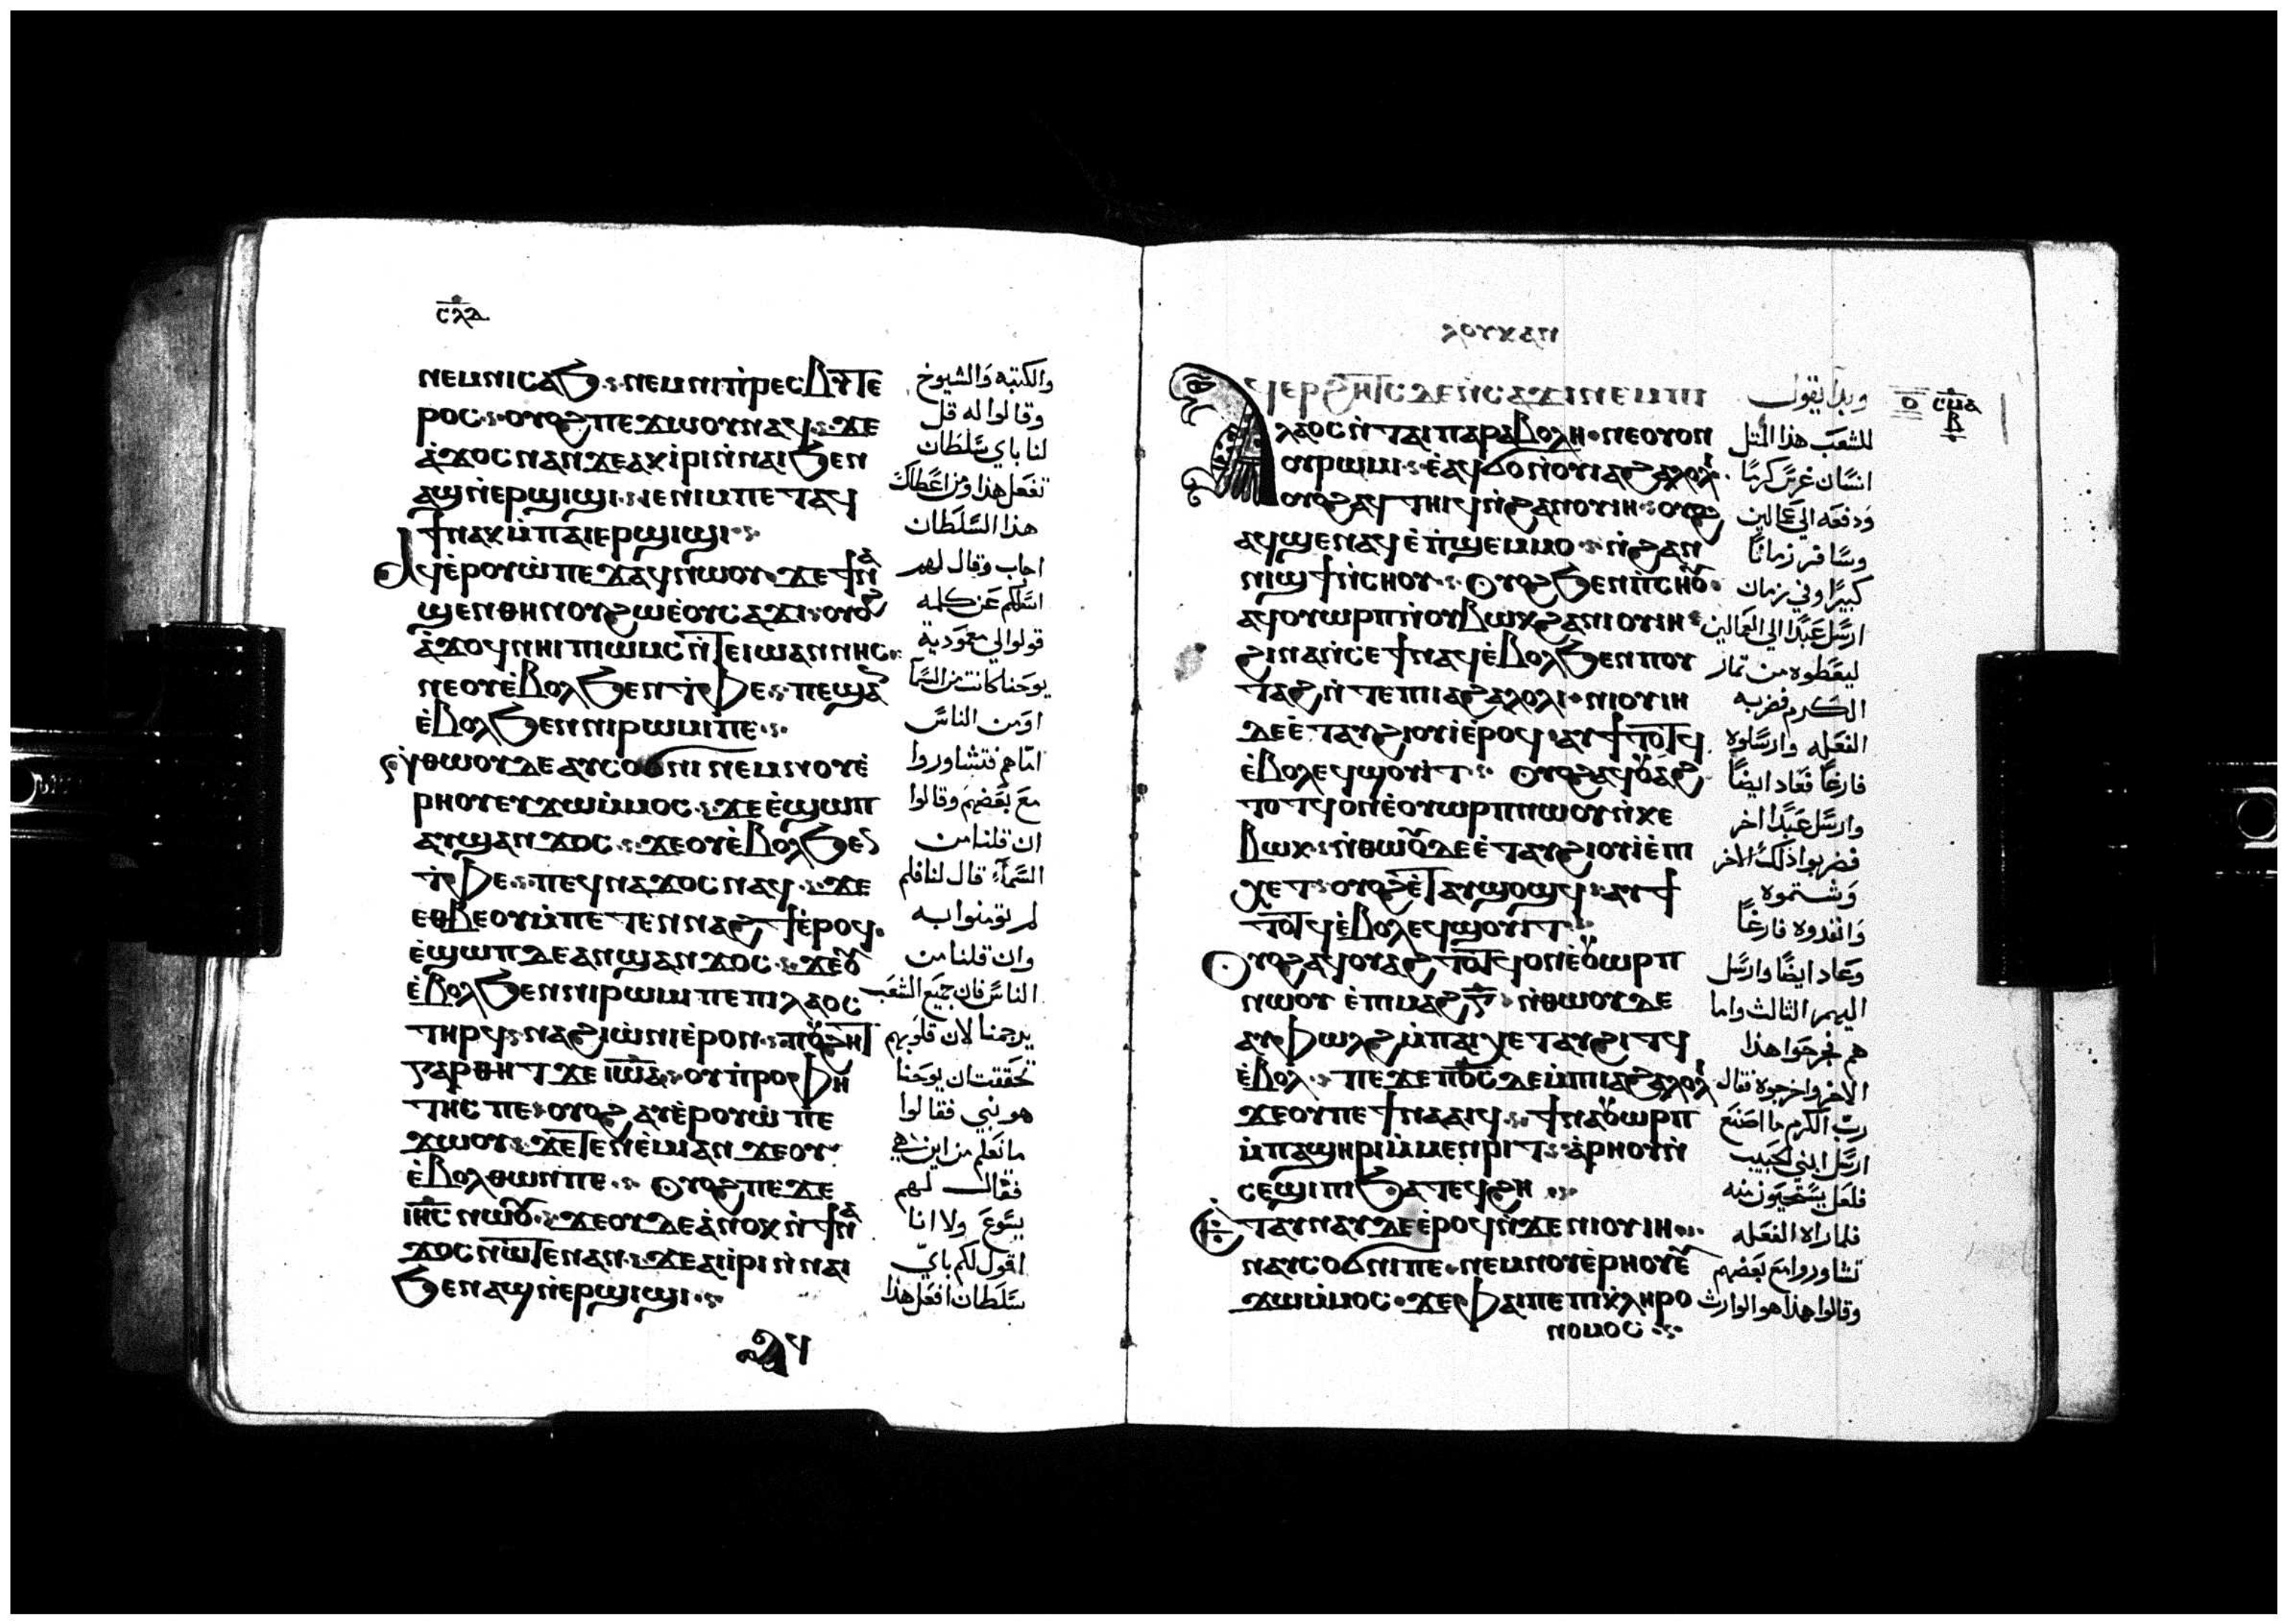 ⲥⲗⲇ
ⲛⲉⲙⲛⲓⲥⲁϧ ⲛⲉⲙⲛⲓⲡⲣⲉⲥⲃⲩⲧⲉ
ⲣⲟⲥ ⲟⲩⲟϩ ⲡⲉϫⲱⲟⲩⲛⲁϥ ϫⲉ
ⲁϫⲟⲥⲛⲁⲛϫⲉⲁⲕⲓⲣⲓⲛⲛⲁⲓϧⲉⲛ
ⲁϣⲛⲉⲣϣⲓϣⲓ ⲓⲉⲛⲓⲙⲡⲉⲧⲁϥ
ϯⲛⲁⲕⲙⲡⲁⲓⲉⲣϣⲓϣⲓ
ⲁϥⲉⲣⲟⲩⲱⲡⲉϫⲁϥⲛⲱⲟⲩ ϫⲉϯⲛⲁ
ϣⲉⲛⲑⲏⲛⲟⲩϩⲱⲉⲟⲩⲥⲁϫⲓ ⲟⲩⲟϩ
ⲁϫⲟϥⲛⲏⲓ ⲡⲓⲱⲙⲥⲛⲧⲉⲓⲱⲁⲛⲛⲏⲥ
ⲛⲉⲟⲩⲉⲃⲟⲗϧⲉⲛⲧⲫⲉ ⲡⲉϣⲁⲛ
ⲉⲃⲟⲗϧⲉⲛⲛⲓⲣⲱⲙⲓⲡⲉ
ⲛⲑⲱⲟⲩⲇⲉⲁⲩⲥⲟϭⲛⲓ ⲛⲉⲙⲛⲟⲩⲉ
ⲣⲏⲟⲩⲉⲩϫⲱⲙⲙⲟⲥ ϫⲉⲉϣⲱⲡ
ⲁⲛϣⲁⲛϫⲟⲥ ϫⲉⲟⲩⲉⲃⲟⲗϧⲉⲛ
ⲧⲫⲉ ⲡⲉϥⲛⲁϫⲟⲥⲛⲁϥ ϫⲉ
ⲉⲑⲃⲉⲟⲩⲙⲡⲉⲧⲉⲛⲛⲁϩϯⲉⲣⲟϥ
ⲉϣⲱⲡⲇⲉⲁⲛϣⲁⲛϫⲟⲥ ϫⲉⲟⲩ
ⲉⲃⲟⲗϧⲉⲛⲛⲓⲣⲱⲙⲓ ⲡⲉⲡⲓⲗⲁⲟⲥ
ⲧⲏⲣϥ ⲛⲁϩⲓⲱⲛⲓⲉⲣⲟⲛ ⲡⲟⲩϩⲏⲧ
ⲅⲁⲣⲑⲏⲧ ϫⲉⲓⲱⲁ ⲟⲩⲡⲣⲟⲫⲏ
ⲧⲏⲥ ⲡⲉ ⲟⲩⲟϩ ⲁⲩⲉⲣⲟⲩⲱ ⲡⲉ
ϫⲱⲟⲩ ϫⲉⲧⲉⲛⲉⲙⲓⲁⲛ ϫⲉⲟⲩ
ⲉⲃⲟⲗⲑⲱⲛⲡⲉ ⲟⲩⲟϩⲡⲉϫⲉ
ⲓⲏⲥ ⲛⲱⲟⲩ ϫⲉⲟⲩⲇⲉⲁⲛⲟⲕ ⲛϯⲛⲁ
ϫⲟⲥⲛⲱⲧⲉⲛⲁⲛ ϫⲉⲁⲓⲓⲣⲓⲛⲛⲁⲓ
ϧⲉⲛⲁϣⲛⲉⲣϣⲓϣⲓ
والكتبه والشيوخ
وقالوا له قل
لنا باي سلطان
تفعل هذا ومن اعطاك
هذا السلطان
اجاب وقال لهم
اسلكم عن كلمه
قولوا لي معودية
يوحنا كانت من السما
او من الناس
اما هم فتشاوروا
مع بعضهم وقالوا
ان قلنا من
السماء قال لنا فلم
لم تومنوا به
وان قلنا من
الناس فان جميع الشعب
يرجمنا لان قلوبهم
تحققت ان يوحنا
هو نبي فقالوا
ما نعلم من اين هي
فقال لهم
يسوع ولا انا
اقول لكم باي
سلطان افعل هذا
ⲗⲟⲩⲕⲁⲛ
ⲁϥⲉⲣϩⲏⲧⲥ ⲇⲉⲛⲥⲁϫⲓⲛⲉⲙⲡⲓ
ⲗⲁⲟⲥⲛⲧⲁⲓⲡⲁⲣⲁⲃⲟⲗⲏ ⲛⲉⲟⲩⲟⲛ
ⲟⲩⲣⲱⲙⲓ ⲉⲁϥϭⲟⲛⲟⲩⲓⲁϩⲁⲗⲟⲗⲓ
ⲟⲩⲟϩⲁϥⲧⲏⲓϥⲛϩⲁⲛⲟⲩⲓⲏ ⲟⲩⲟϩ
ⲁϥϣⲉⲛⲁϥⲉⲡϣⲉⲙⲙⲟ ⲛϩⲁⲛ
ⲛⲓϣϯⲛⲥⲏⲟⲩ ⲟⲩⲟϩϧⲉⲛⲡⲥⲏⲟⲩ
ⲁϥⲟⲩⲱⲣⲡⲛⲟⲩⲃⲱⲕϩⲁⲛⲓⲟⲩⲓⲏ
ϩⲓⲛⲁⲛⲥⲉϯⲛⲁϥⲉⲃⲟⲗϧⲉⲛⲡⲟⲩ
ⲧⲁϩⲛⲧⲉⲡⲓⲁϩⲁⲗⲟⲗⲓ ⲛⲓⲟⲩⲓⲏ
ⲇⲉⲉⲧⲁⲩϩⲓⲟⲩⲓⲉⲣⲟϥ ⲁⲩϯⲧⲟⲧϥ
ⲉⲃⲟⲗⲉϥϣⲟⲩⲓⲧ ⲟⲩⲟϩⲁϥⲟⲩⲁϩ
ⲧⲟⲧϥⲟⲛⲉⲟⲩⲱⲣⲡⲛⲱⲟⲩⲛⲕⲉ
ⲃⲱⲕ ⲛⲑⲱⲟⲩⲇⲉⲉⲧⲁⲩϩⲓⲟⲩⲓⲉⲡⲓ
ⲭⲉⲧ ⲟⲩⲟϩⲉⲧⲁⲩϣⲟϣϥ ⲁⲩϯ
ⲧⲟⲧϥⲉⲃⲟⲗⲉϥϣⲟⲩⲓⲧ
ⲟⲩⲟϩⲁϥⲟⲩⲁϩ ⲧⲟⲧϥⲟⲛⲉⲟⲩⲱⲣⲡ
ⲛⲱⲟⲩ ⲉⲡⲓⲙⲁϩⲅ ⲛⲑⲱⲟⲩⲇⲉ
ⲁⲩⲫⲱⲗϩⲙⲡⲁⲓⲭⲉⲧⲁⲩϩⲓⲧϥ
ⲉⲃⲟⲗ ⲡⲉϫⲉⲡϭⲥ ⲇⲉⲙⲡⲓⲁϩⲁⲗⲟⲗⲓ
ϫⲉⲟⲩⲡⲉϯⲛⲁⲁⲓϥ ϯⲛⲁⲟⲩⲱⲣⲡ
ⲙⲡⲁϣⲏⲣⲓⲙⲙⲉⲛⲣⲓⲧ ⲁⲣⲏⲟⲩⲛ
ⲥⲉϣⲓⲡⲓϧⲁⲧⲉϥϩⲏ
ⲉⲧⲁⲩⲛⲁⲩⲇⲉⲉⲣⲟϥⲛϫⲉⲛⲓⲟⲩⲓⲏ
ⲛⲁⲩⲥⲟϭⲛⲓⲡⲉ ⲛⲉⲙⲛⲟⲩⲉⲣⲏⲟⲩⲉⲩ
ϫⲱⲙⲙⲟⲥ ϫⲉⲫⲁⲓⲡⲉⲡⲓⲕⲗⲏⲣⲟ
ⲛⲟⲙⲟⲥ
وبدا يقول
للشعب هذا المثل
انسان غرس كرما
ودفعه الي عمالين
وسافر زمانا
كبيرا وفي زمان
ارسل عبدا الي العمالين
ليعطوه من ثمار
الكرم فضربه
الفعله وارسلوه
فارغا فعاد ايضا
وارسل عبدا اخر
فضربوا ذلك الاخر
وشتموه
وانفدوه فارغا
وعاد ايضا وارسل
اليهم الثالث واما
هم فجرحوا هذا
الاخر واخرجوه فقال
رب الكرم ما اصنع
ارسل ابني الحبيب
فلعل يستحيون منه
فلما راه الفعله
تشاوروا مع بعضهم
وقالوا هذا هو الوارث